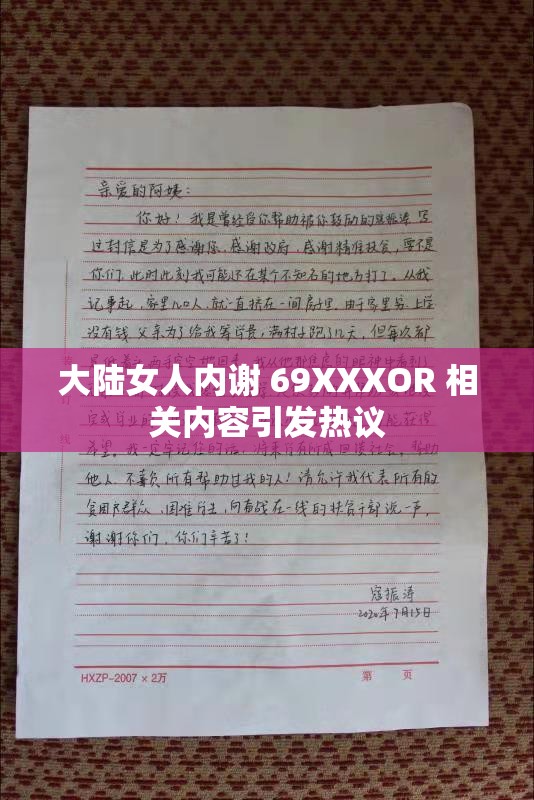 亲爱的阿姨：
你好！我是曾经受你帮助被你鼓励的寇振涛 写
这封信是为了感谢你、感谢政府、感谢精准扶贫，要不是
你们，此时此刻我可能还在某个不知名的地方打工。从我
记事起，家里几口人，就一直挤在一间房子里，由于家里穷，上学
没有钱，父亲为了给我筹学费，满村子跑了几天，但每次都
大陆女人内谢 69XXXOR 相
关内容引发热议
他人，不辜负所有帮助过我的人！请允许我代表所有的
贫困民群众，困难学生，向奋战在一线的扶贫干部说一声，
谢谢你们，你们辛苦了！
寇振涛
2020年7月15日
HXZP-2007×2万
第 页